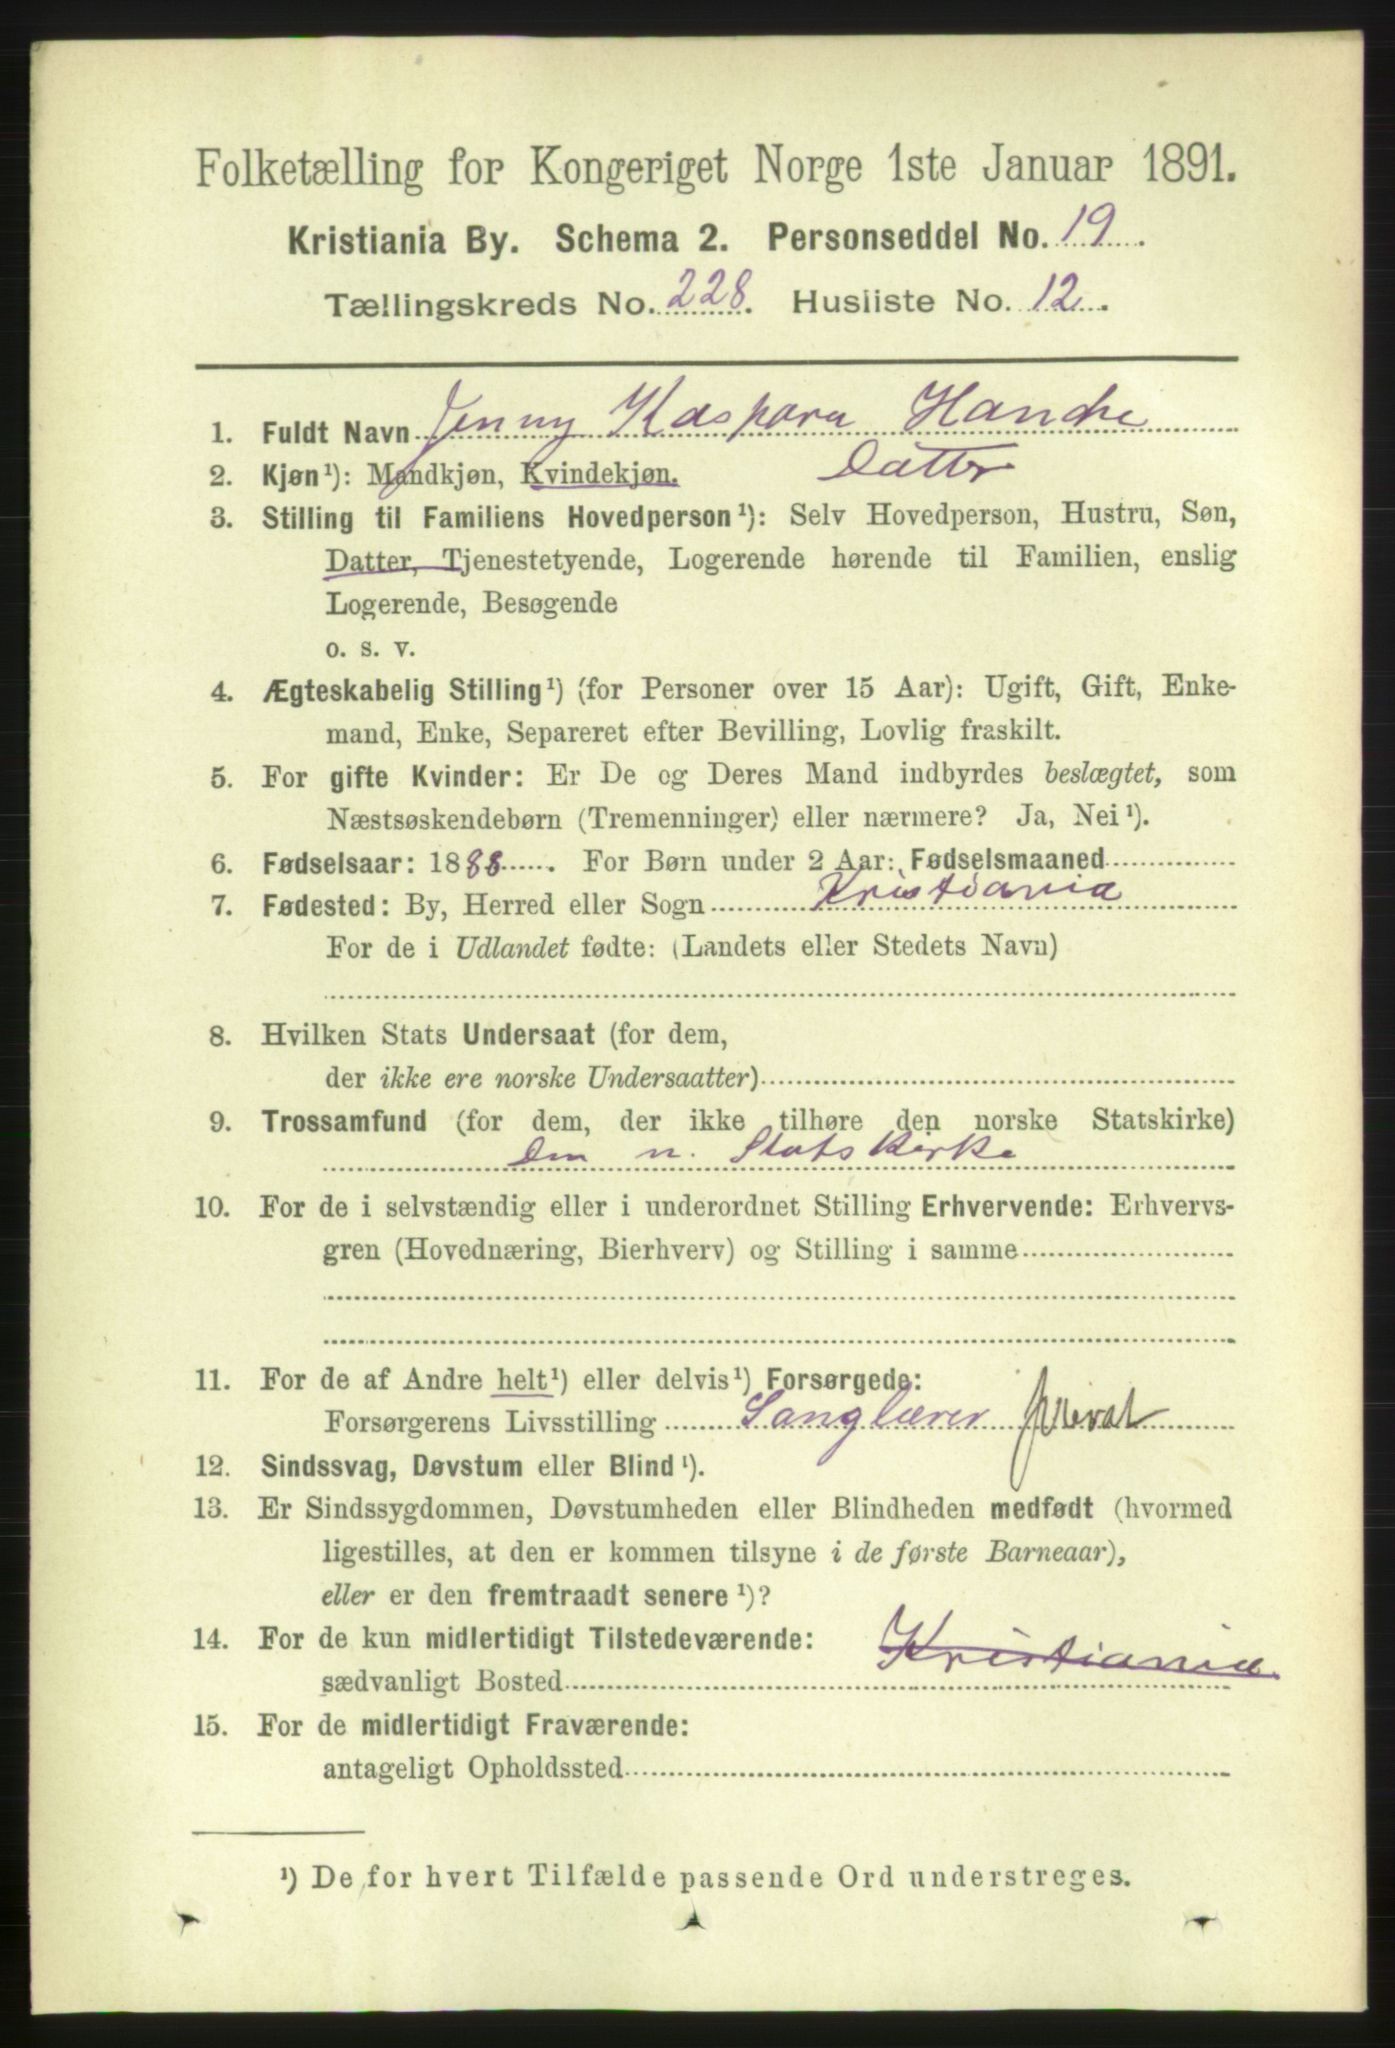 Folketælling for Kongeriget Norge 1ste Januar 1891.
Kristiania By. Schema 2. Personseddel No. 19.
Tællingskreds No. 228. Husliste No. 12.
1. Fuldt Navn Jenny Kaspara Hanche
2. Kjøn¹): Mandkjøn, Kvindekjøn. Datter
3. Stilling til Familiens Hovedperson¹): Selv Hovedperson, Hustru, Søn,
Datter, Tjenestetyende, Logerende hørende til Familien, enslig
Logerende, Besøgende
o. s. v.
4. Ægteskabelig Stilling¹) (for Personer over 15 Aar): Ugift, Gift, Enke-
mand, Enke, Separeret efter Bevilling, Lovlig fraskilt.
5. For gifte Kvinder: Er De og Deres Mand indbyrdes beslægtet, som
Næstsøskendebørn (Tremenninger) eller nærmere? Ja, Nei¹).
6. Fødselsaar: 1888. For Børn under 2 Aar: Fødselsmaaned
7. Fødested: By, Herred eller Sogn Kristiania
For de i Udlandet fødte: (Landets eller Stedets Navn)
8. Hvilken Stats Undersaat (for dem,
der ikke ere norske Undersaatter)
9. Trossamfund (for dem, der ikke tilhøre den norske Statskirke)
Den n. Statskirke
10. For de i selvstændig eller i underordnet Stilling Erhvervende: Erhvervs-
gren (Hovednæring, Bierhverv) og Stilling i samme
11. For de af Andre helt¹) eller delvis¹) Forsørgede:
Forsørgerens Livsstilling Sanglærer privat
12. Sindssvag, Døvstum eller Blind¹).
13. Er Sindssygdommen, Døvstumheden eller Blindheden medfødt (hvormed
ligestilles, at den er kommen tilsyne i de første Barneaar),
eller er den fremtraadt senere¹)?
14. For de kun midlertidigt Tilstedeværende: Kristiania
sædvanligt Bosted
15. For de midlertidigt Fraværende:
antageligt Opholdssted
¹) De for hvert Tilfælde passende Ord understreges.